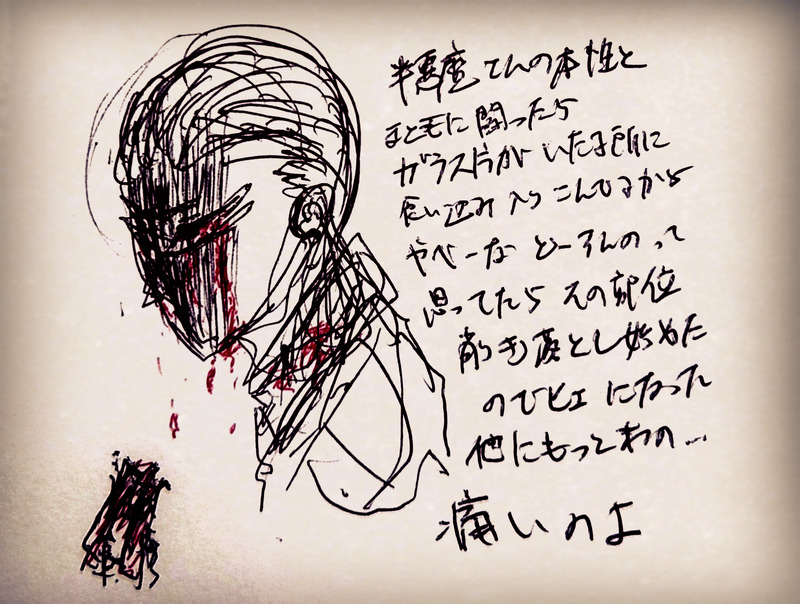 半悪魔てんの本性と
まともに闘ったら
ガラス片がいたる所に
食い込み入りこんでるから
やべーなどーすんのって
思ってたらその部位
削ぎ落とし始めた
のでヒェになった
他にもっとあの…
痛いのよ